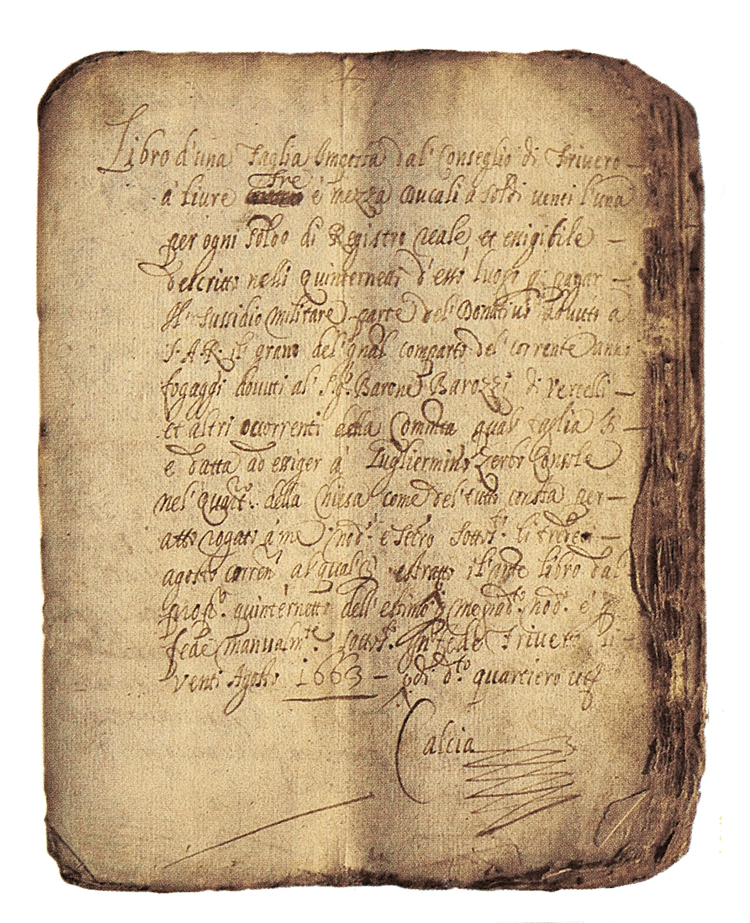 Libro d'una Taglia Imposta dal Conseglio di Trivero
à livre tre e mezza Ducali à soldi venti l'una
per ogni soldo di Registro reale, et esigibile
descritto nelli quinternetti d'essi luoghi p. pagar
Il sussidio militare, parte del Donativo dovuto a
S. A. R. il grano del qual comparto del corrente anno
fogaggi dovuti al Sig. Barone Barozzi di Vercelli
et altri occorrenti alla Comunta qual taglia
e datta ad esiger à Gugliermino Zerbo Console
nel quart.º della Chiesa come del tutto consta per
atto rogato à me nod.º e Secro sottos.to li tredeci
agosto corren.te al qual estratto il pnte libro dal
quinternetto dell'estimo p me nod.º e p
fede manualm.te sottos.to In fede Trivero li
venti Agosto 1663 – p di d.to quartiero
Calcia